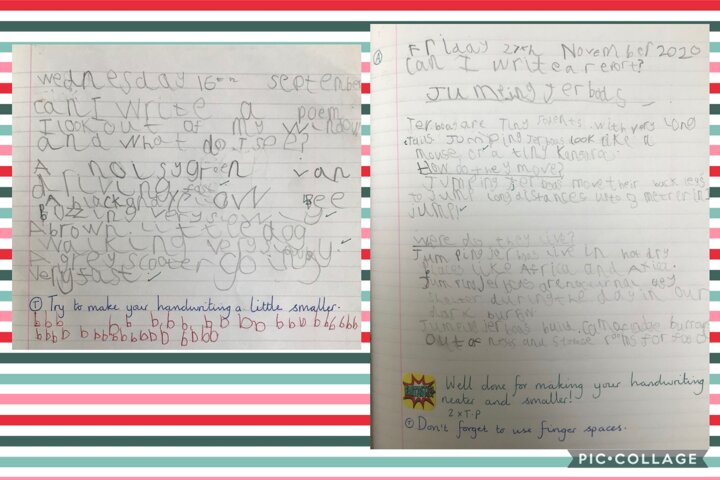 wednesday 16th september
can I write a poem
I look out of my window
and what do I see?
A noisy green van
driving fast
A black and yellow Bee
Buzzing very slowly
A brown little dog
walking very
A grey scooter going
very fast.
T Try to make your handwriting a little smaller.
b b b b b b b b b b b b b b b b b b b
b b b b b b b b b b b b
Friday 27th November 2020
can I write a report?
Jumping Jerboas
Jerboas are Tiny rodents with very long
tails Jumping Jerboas look like a
mouse or a tiny
How do they move?
Jumping Jerboas move their back legs
to Jump long distances
Jump
were do they live?
Jumping Jerboas live in hot dry
places like Africa and Axia.
Jumping Jerboas are
during the day in our
dark
Jumping Jerboas
out of and rooms for
Well done for making your handwriting
neater and smaller!
2 x T.P
T Don't forget to use finger spaces.
PIC•COLLAGE